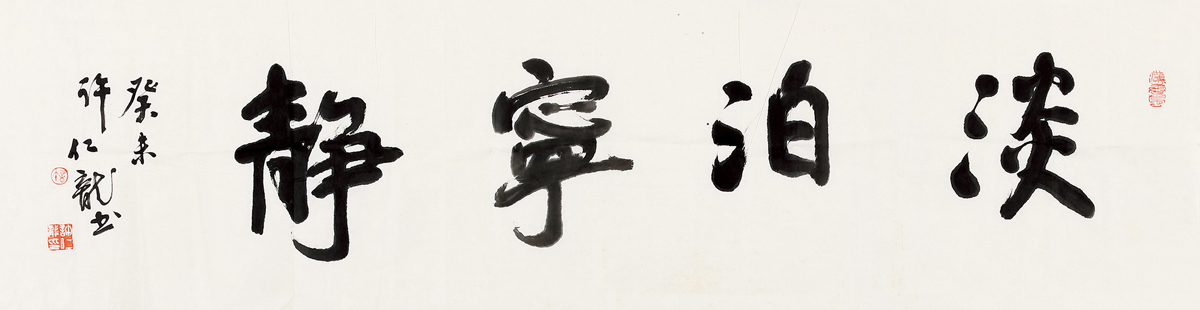 淡泊寧靜
癸未
許仁龍书